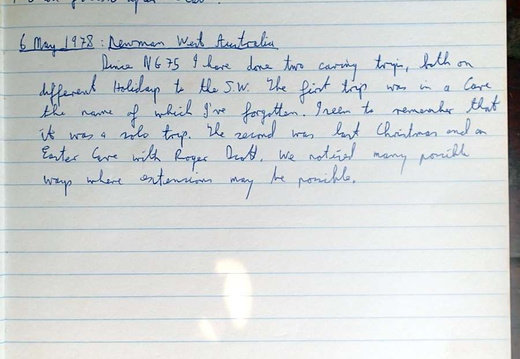 6 May 1978: Newman West Australia
Since NG75 I have done two caving trips, both on
different Holidays to the S.W. The first trip was in a Cave
the name of which I've forgotten. I seem to remember that
it was a solo trip. The second was last Christmas and in
Easter Cave with Roger. We noticed many possible
ways where extensions may be possible.